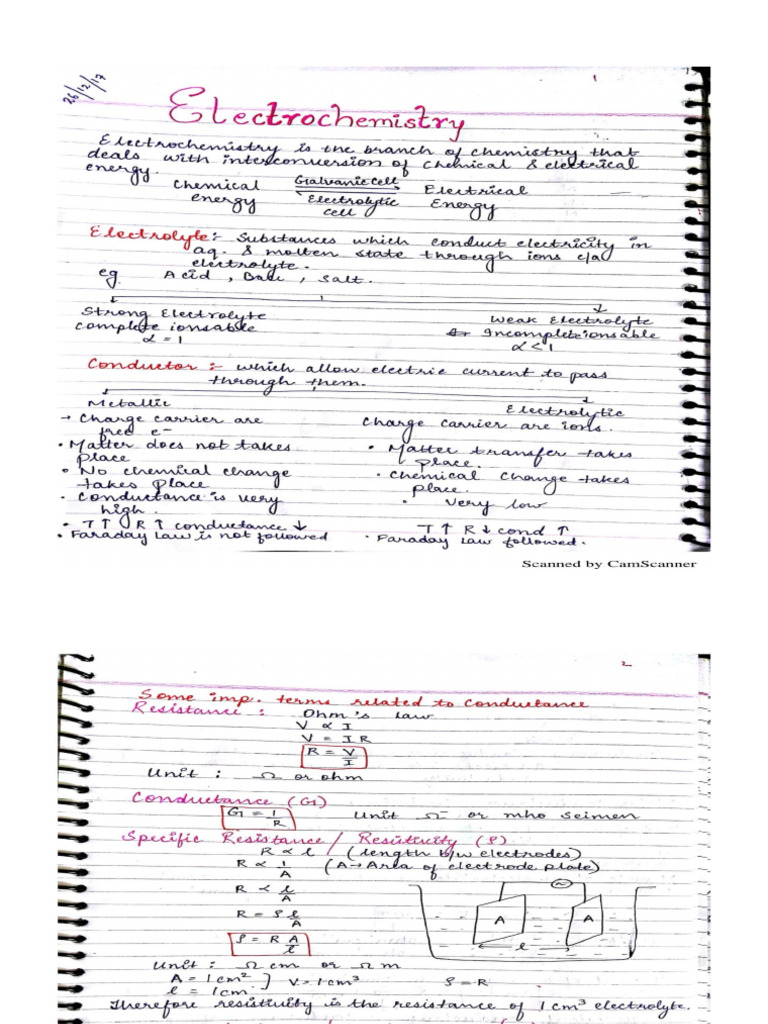 26/12/17
1
Electrochemistry
Electrochemistry is the branch of chemistry that
deals with interconversion of chemical & electrical
energy.
Chemical energy Galvanic cell Electrical Energy
Electrolytic cell
Electrolyte:- Substances which conduct electricity in
aq. & molten state through ions c/a
electrolyte.
eg. Acid, Base, Salt.
Strong Electrolyte Weak Electrolyte
complete ionsable Incomplete ionsable
α = 1 α < 1
Conductor :- which allow electric current to pass
through them.
Metallic Electrolytic
→ Charge carrier are Charge carrier are ions.
free e-
• Matter does not takes • Matter transfer takes
place place.
• No chemical change • Chemical Change takes
takes place place.
• Conductance is very • Very low
high.
• T↑ R↑ conductance ↓ T↑ R↓ cond ↑
• Faraday Law is not followed • Faraday Law followed.
Scanned by CamScanner
2
Some imp. terms related to Conductance
Resistance : Ohm's Law
V ∝ I
V = I R
R = V/I
Unit : Ω or ohm
Conductance (G)
G = 1/R Unit Ω⁻ or mho seimen
Specific Resistance / Resistivity (ρ)
R ∝ l (length b/w electrodes)
R ∝ 1/A (A→Area of electrode plate)
R ∝ l/A
R = ρ l/A
A A
l
ρ = R A/l
Unit : Ω cm or Ω m
A = 1 cm² ] V = 1 cm³ ρ = R
l = 1 cm.
Therefore resistivity is the resistance of 1 cm³ electrolyte.